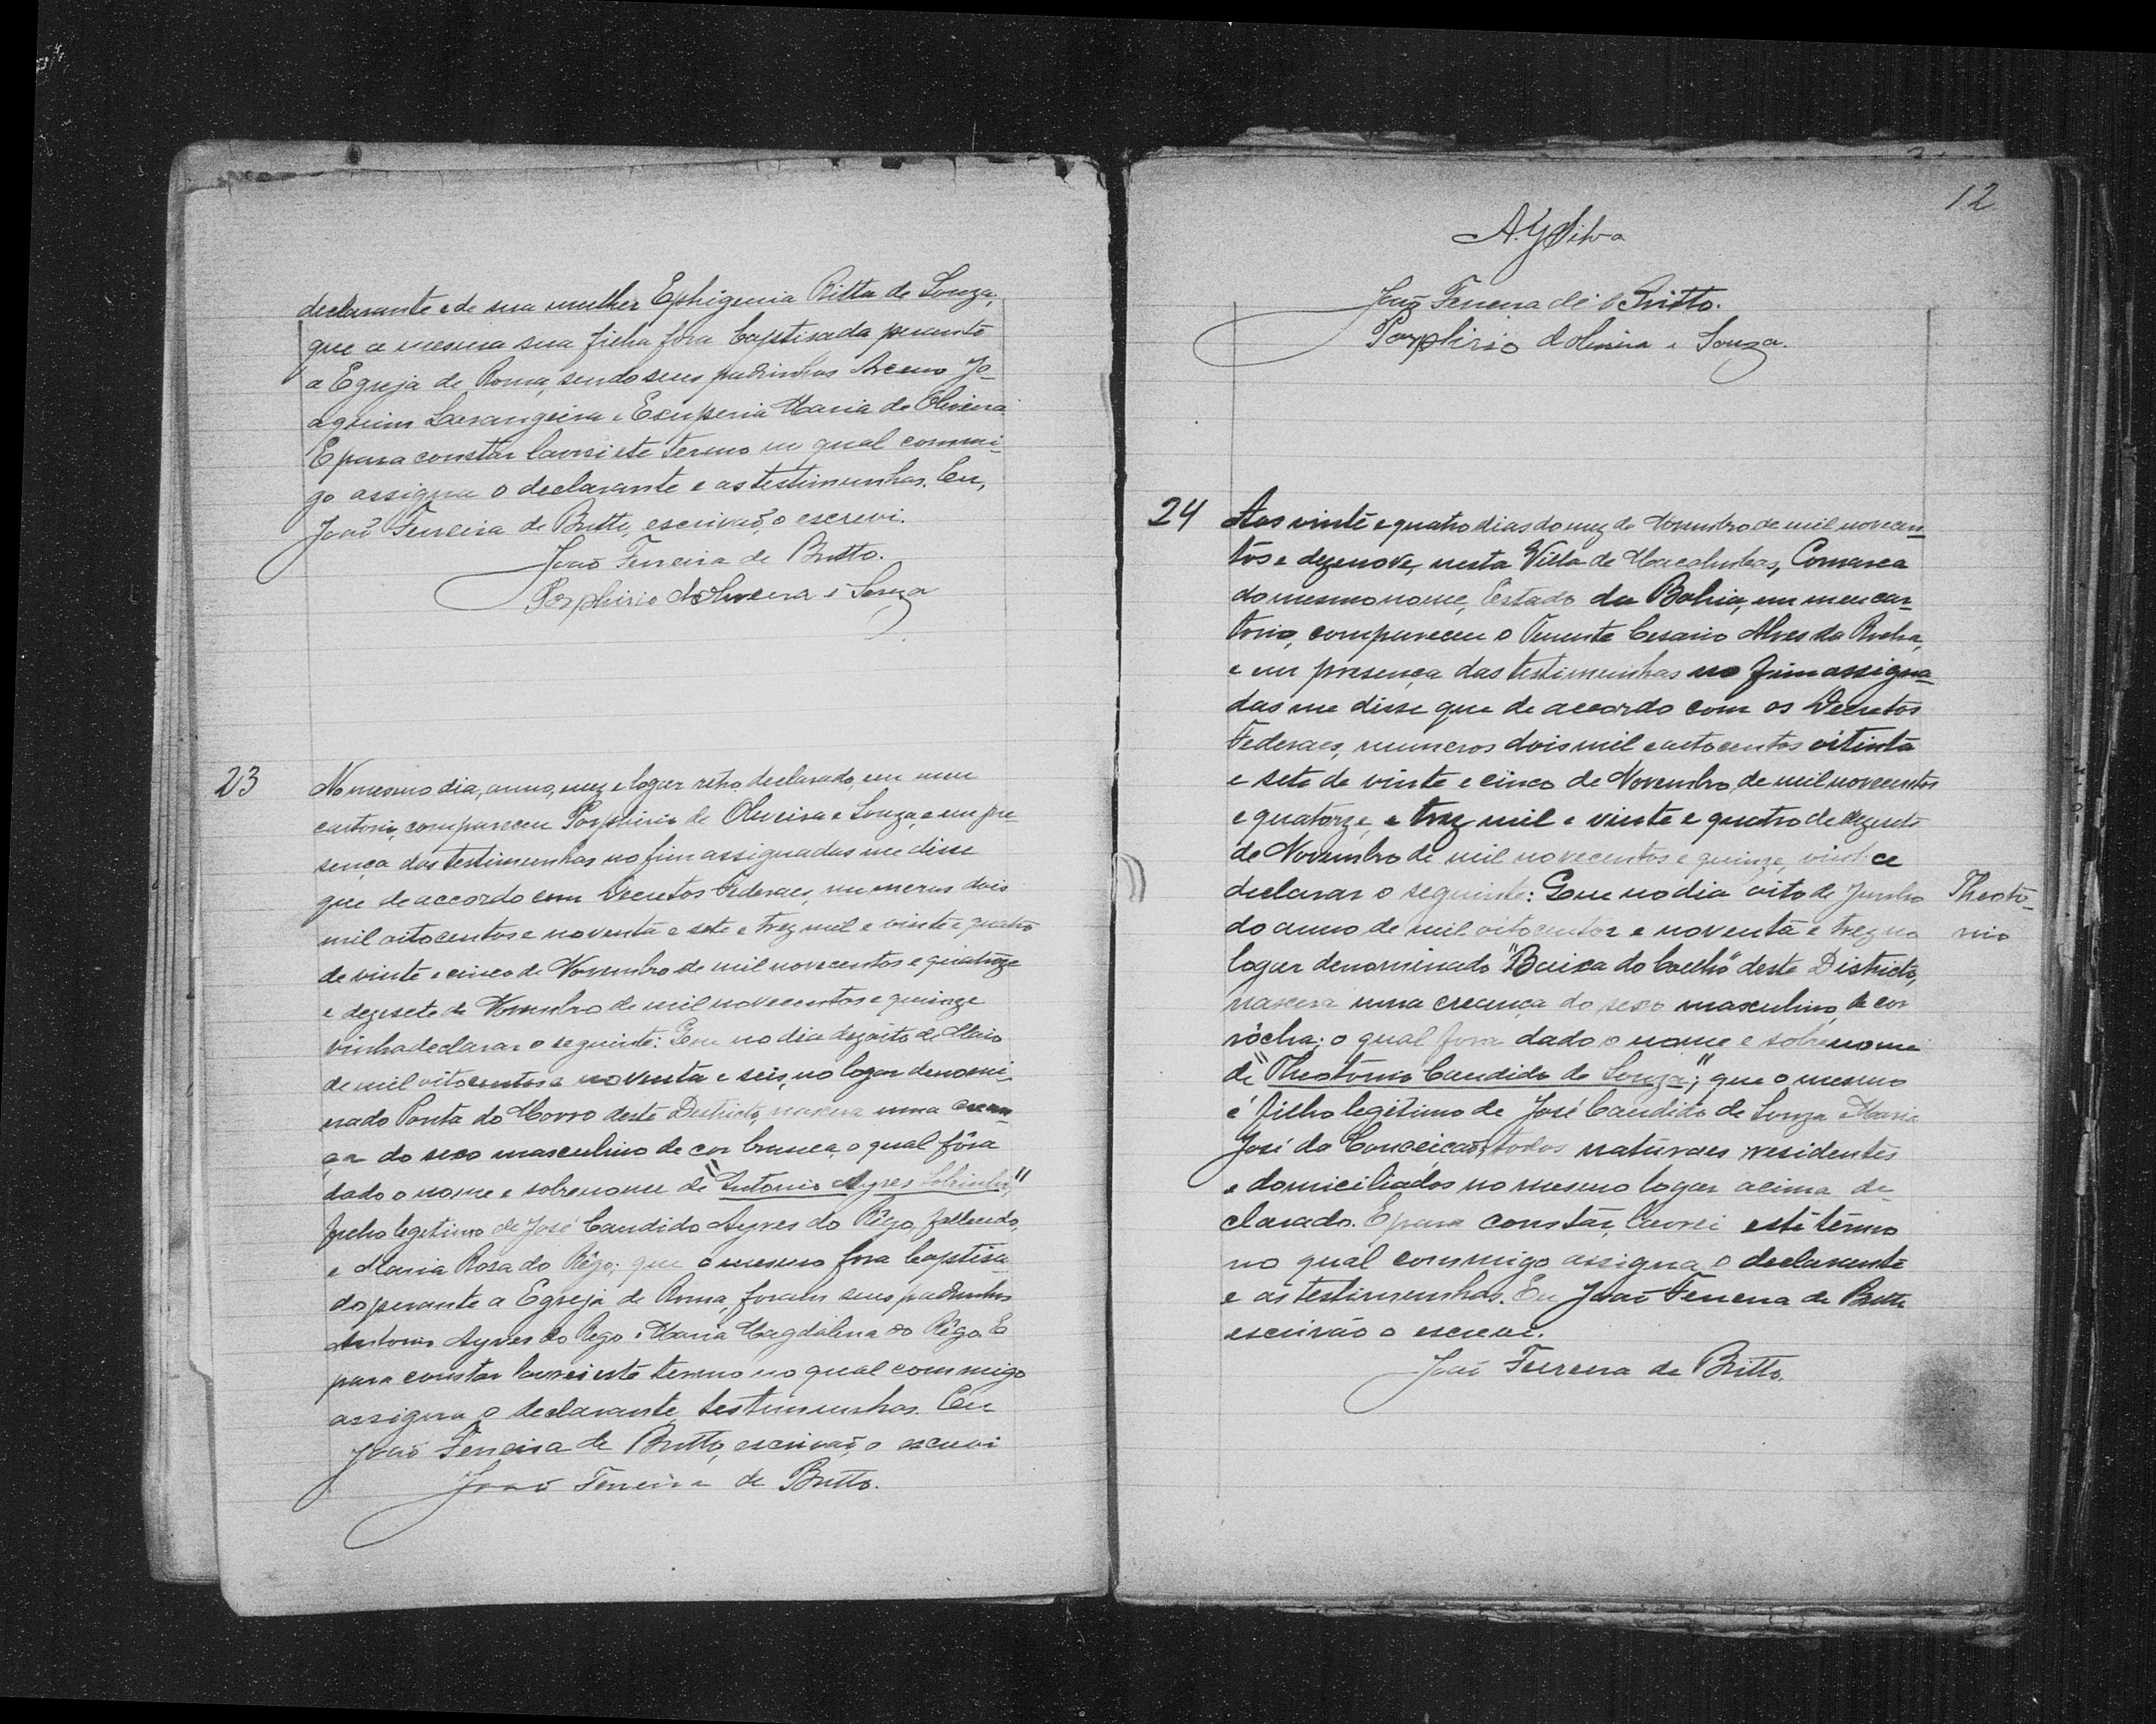 declarante e de sua mulher Ephigenia Ritta de Souza,
que a mesma sua filha fôra baptisada perante
a Egreja de Roma, sendo seus padrinhos Jo-
aquim Larangeira e Exuperia Maria de Oliveira
E para constar lavrei este termo no qual commi-
go assigna o declarante e as testimunhas. Eu,
João Ferreira de Britto, escrivão, o escrevi.
João Ferreira de Britto.
Porphirio de Oliveira e Souza
23
No mesmo dia, anno, mez e logar retro declarado, em meu
cartorio, compareceu Porphirio de Oliveira e Souza, e em pre-
sença das testimunhas no fim assignadas me disse
que de accordo com Decretos Federaes, numeros dois
mil oitocentos e noventa e sete e trez mil e vinte e quatro
de vinte e cinco de Novembro de mil novecentos e quatorze
e dezesete de Novembro de mil novecentos e quinze
vinha declarar o seguinte: Que no dia dezoito de Maio
de mil oitocentos e noventa e seis, no logar denomi-
nado Ponta do Morro deste Destricto, nascera uma crean-
ça do sexo masculino de cor branca, o qual fôra
dado o nome e sobrenome de "Antonio Ayres Sobrinho",
filho legitimo de José Candido Ayres do Rêgo, fallecido,
e Maria Rosa do Rêgo; que o mesmo fora baptisa-
do perante a Egreja de Roma, foram seus padrinhos
Antonio Ayres do Rego e Maria Magdalena do Rêgo. E
para constar lavrei este termo no qual commigo
assigna o declarante testimunhas. Eu
João Ferreira de Britto, escrivão, o escrevi
João Ferreira de Britto.
12
A. Y Silva
João Ferreira de Britto.
Porphirio de Oliveira e Souza.
24
Aos vinte e quatro dias do mez de Novembro de mil novecen-
tos e dezenove, nesta Villa de Macahubas, Comarca
do mesmo nome, Estado da Bahia, em meu car-
torio, compareceu o Tenente Cesario Alves da Rocha,
e em presença das testimunhas no fim assigna-
das me disse que de accordo com os Decretos
Federaes, numeros dois mil e oitocentos oitinta
e sete de vinte e cinco de Novembro de mil novecentos
e quatorze, e trez mil e vinte e quatro de dezesete
de Novembro de mil novecentos e quinze,
declarar o seguinte: Que no dia oito de Junho
do anno de mil oitocentos e noventa e trez no
logar denominado "Baixa do Coelho" deste Districto,
nascera uma creança do sexo masculino, de cor
rôcha; o qual fora dado o nome e sobrenome
de "Theotonio Candido de Souza"; que o mesmo
é filho legitimo de José Candido de Souza e Maria
José da Conceição, todos naturaes residentes
e domiciliados no mesmo logar acima de-
clarado. E para constar, lavrei este têrmo
no qual commigo assigna o declarante
e as testimunhas. Eu João Ferreira de Britto
escrivão o escrevi.
João Ferreira de Britto.
Theoto-
nio